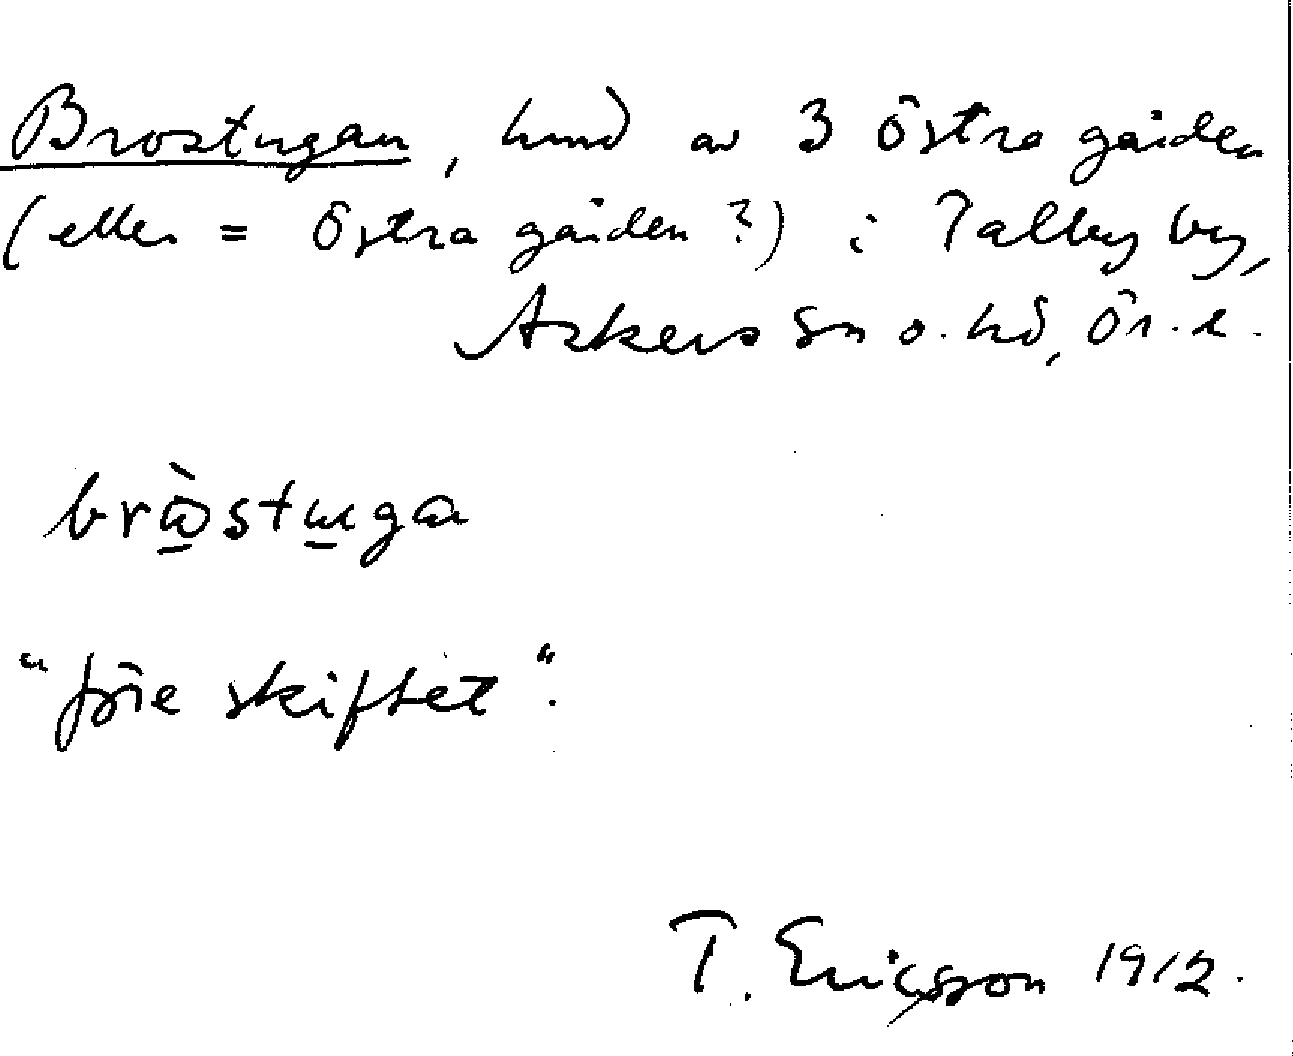 Brostugan, hmd av 3 Östra gården
(eller = Östra gården ?) i Talby by,
Askers sn o. hd, Ör. l.
bròstuga
"före skiftet".
T. Ericsson 1912.